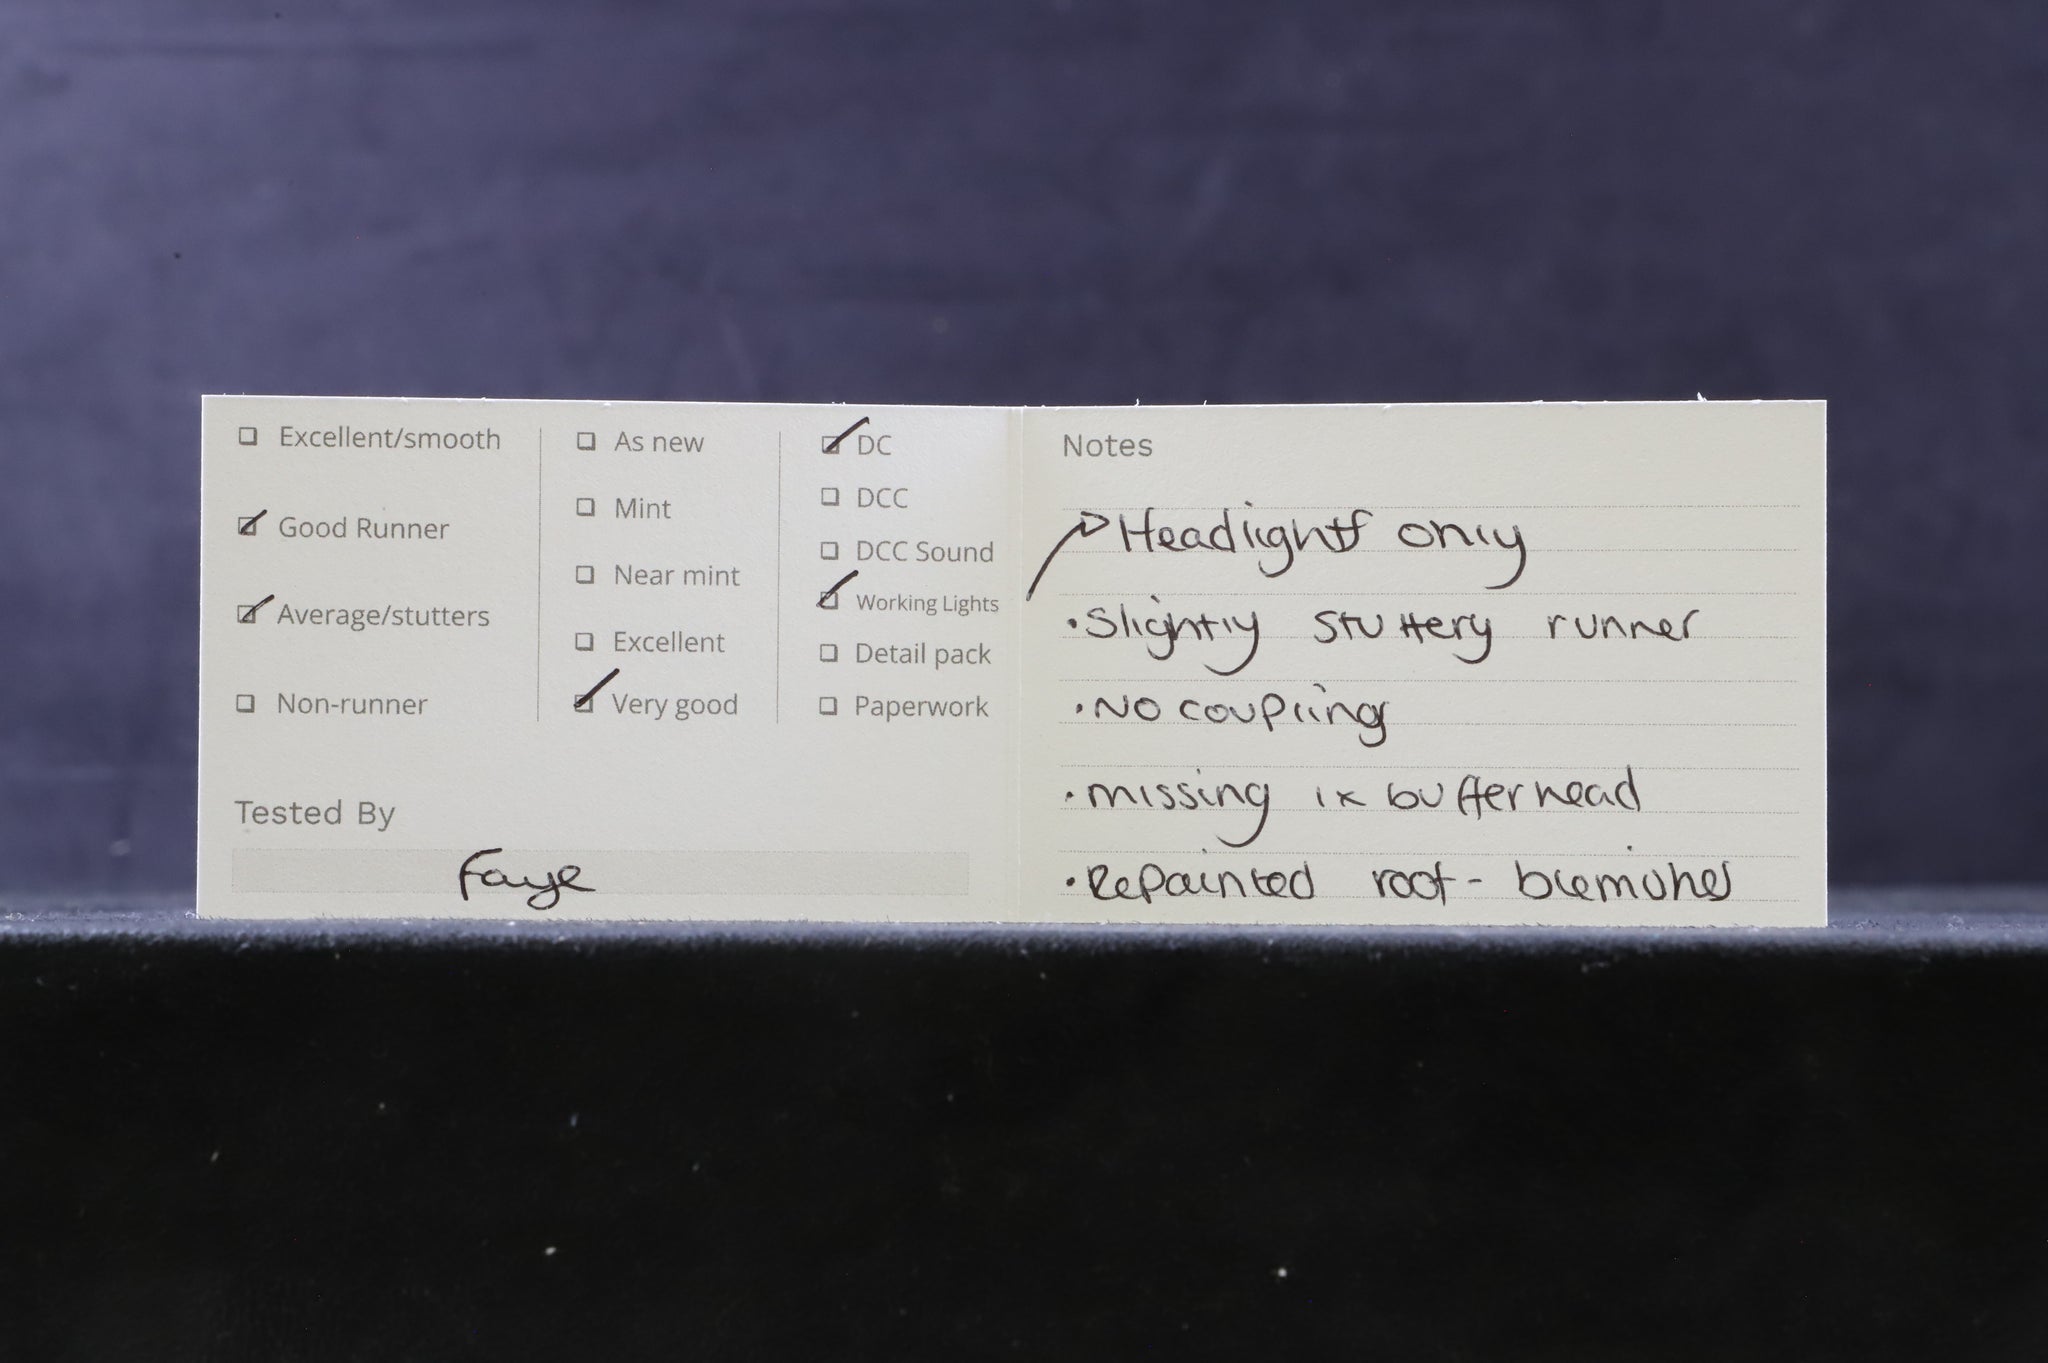 Excellent/smooth
Good Runner
Average/stutters
Non-runner
As new
Mint
Near mint
Excellent
Very good
DC
DCC
DCC Sound
Working Lights
Detail pack
Paperwork
Tested By
Faye
Notes
Headlights only
• Slightly stuttery runner
• NO couplings
• missing 1x bufferhead
• Repainted roof - blemishes